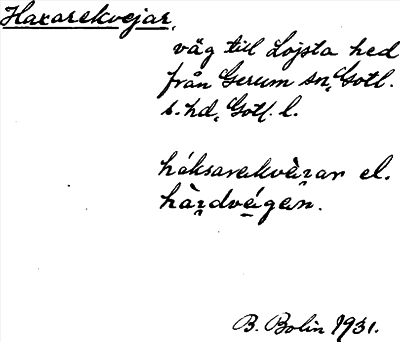 Haxarekvejar,
väg till Lojsta hed
från Gerum sn, Gotl.
s. hd, Gotl. l.
háksarekvàr̥ar el.
hàr̥dvágen.
B. Bolin 1931.